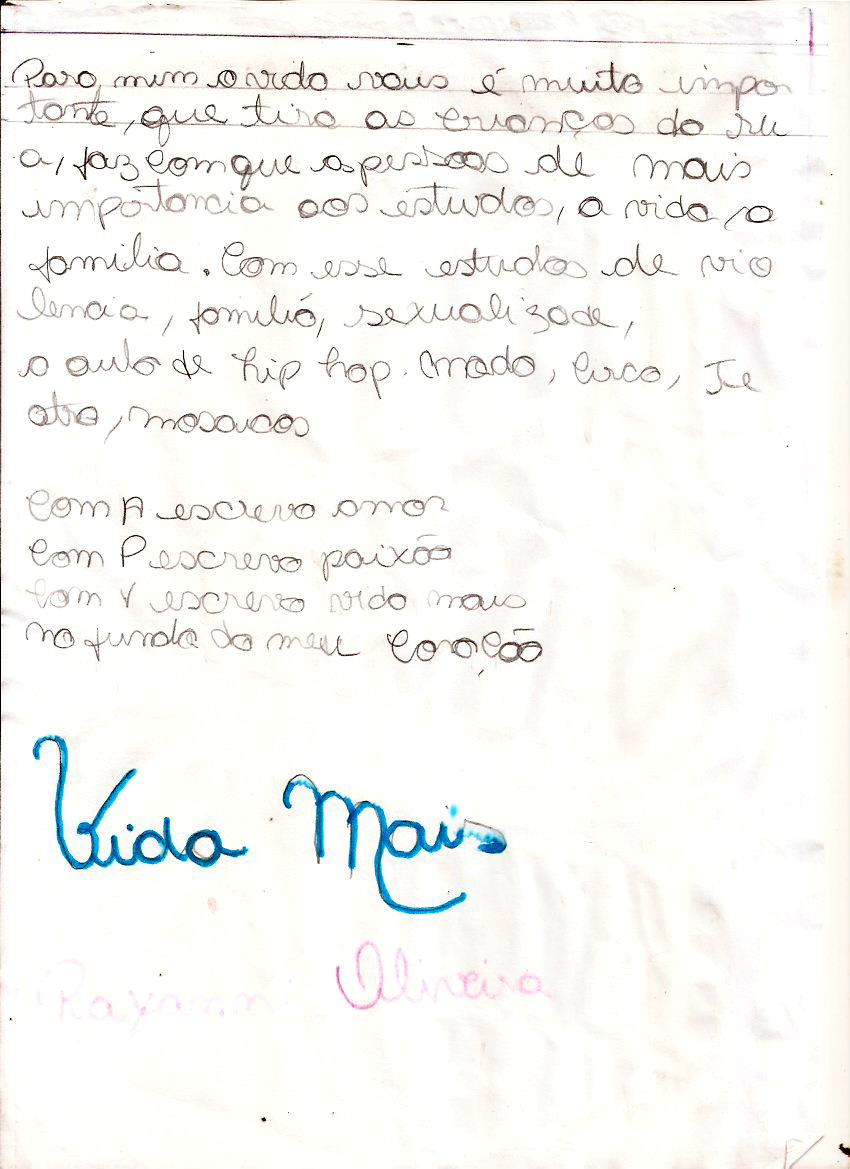 Para mim o vida vais é muito impor
tante, que tira as crianças da ru
a, faz com que as pessoas de mais
importancia aos estudos, a vida, a
familia. Com esse estudos de vio
lencia, familiá, sexualizade,
a aula de hip hop. Moda, Circo, Te
atro, mosaicos
Com A escrevo amor
Com P escrevo paixão
Com V escrevo vida mais
no fundo do meu Coração
Vida Mais
Rayanni Oliveira